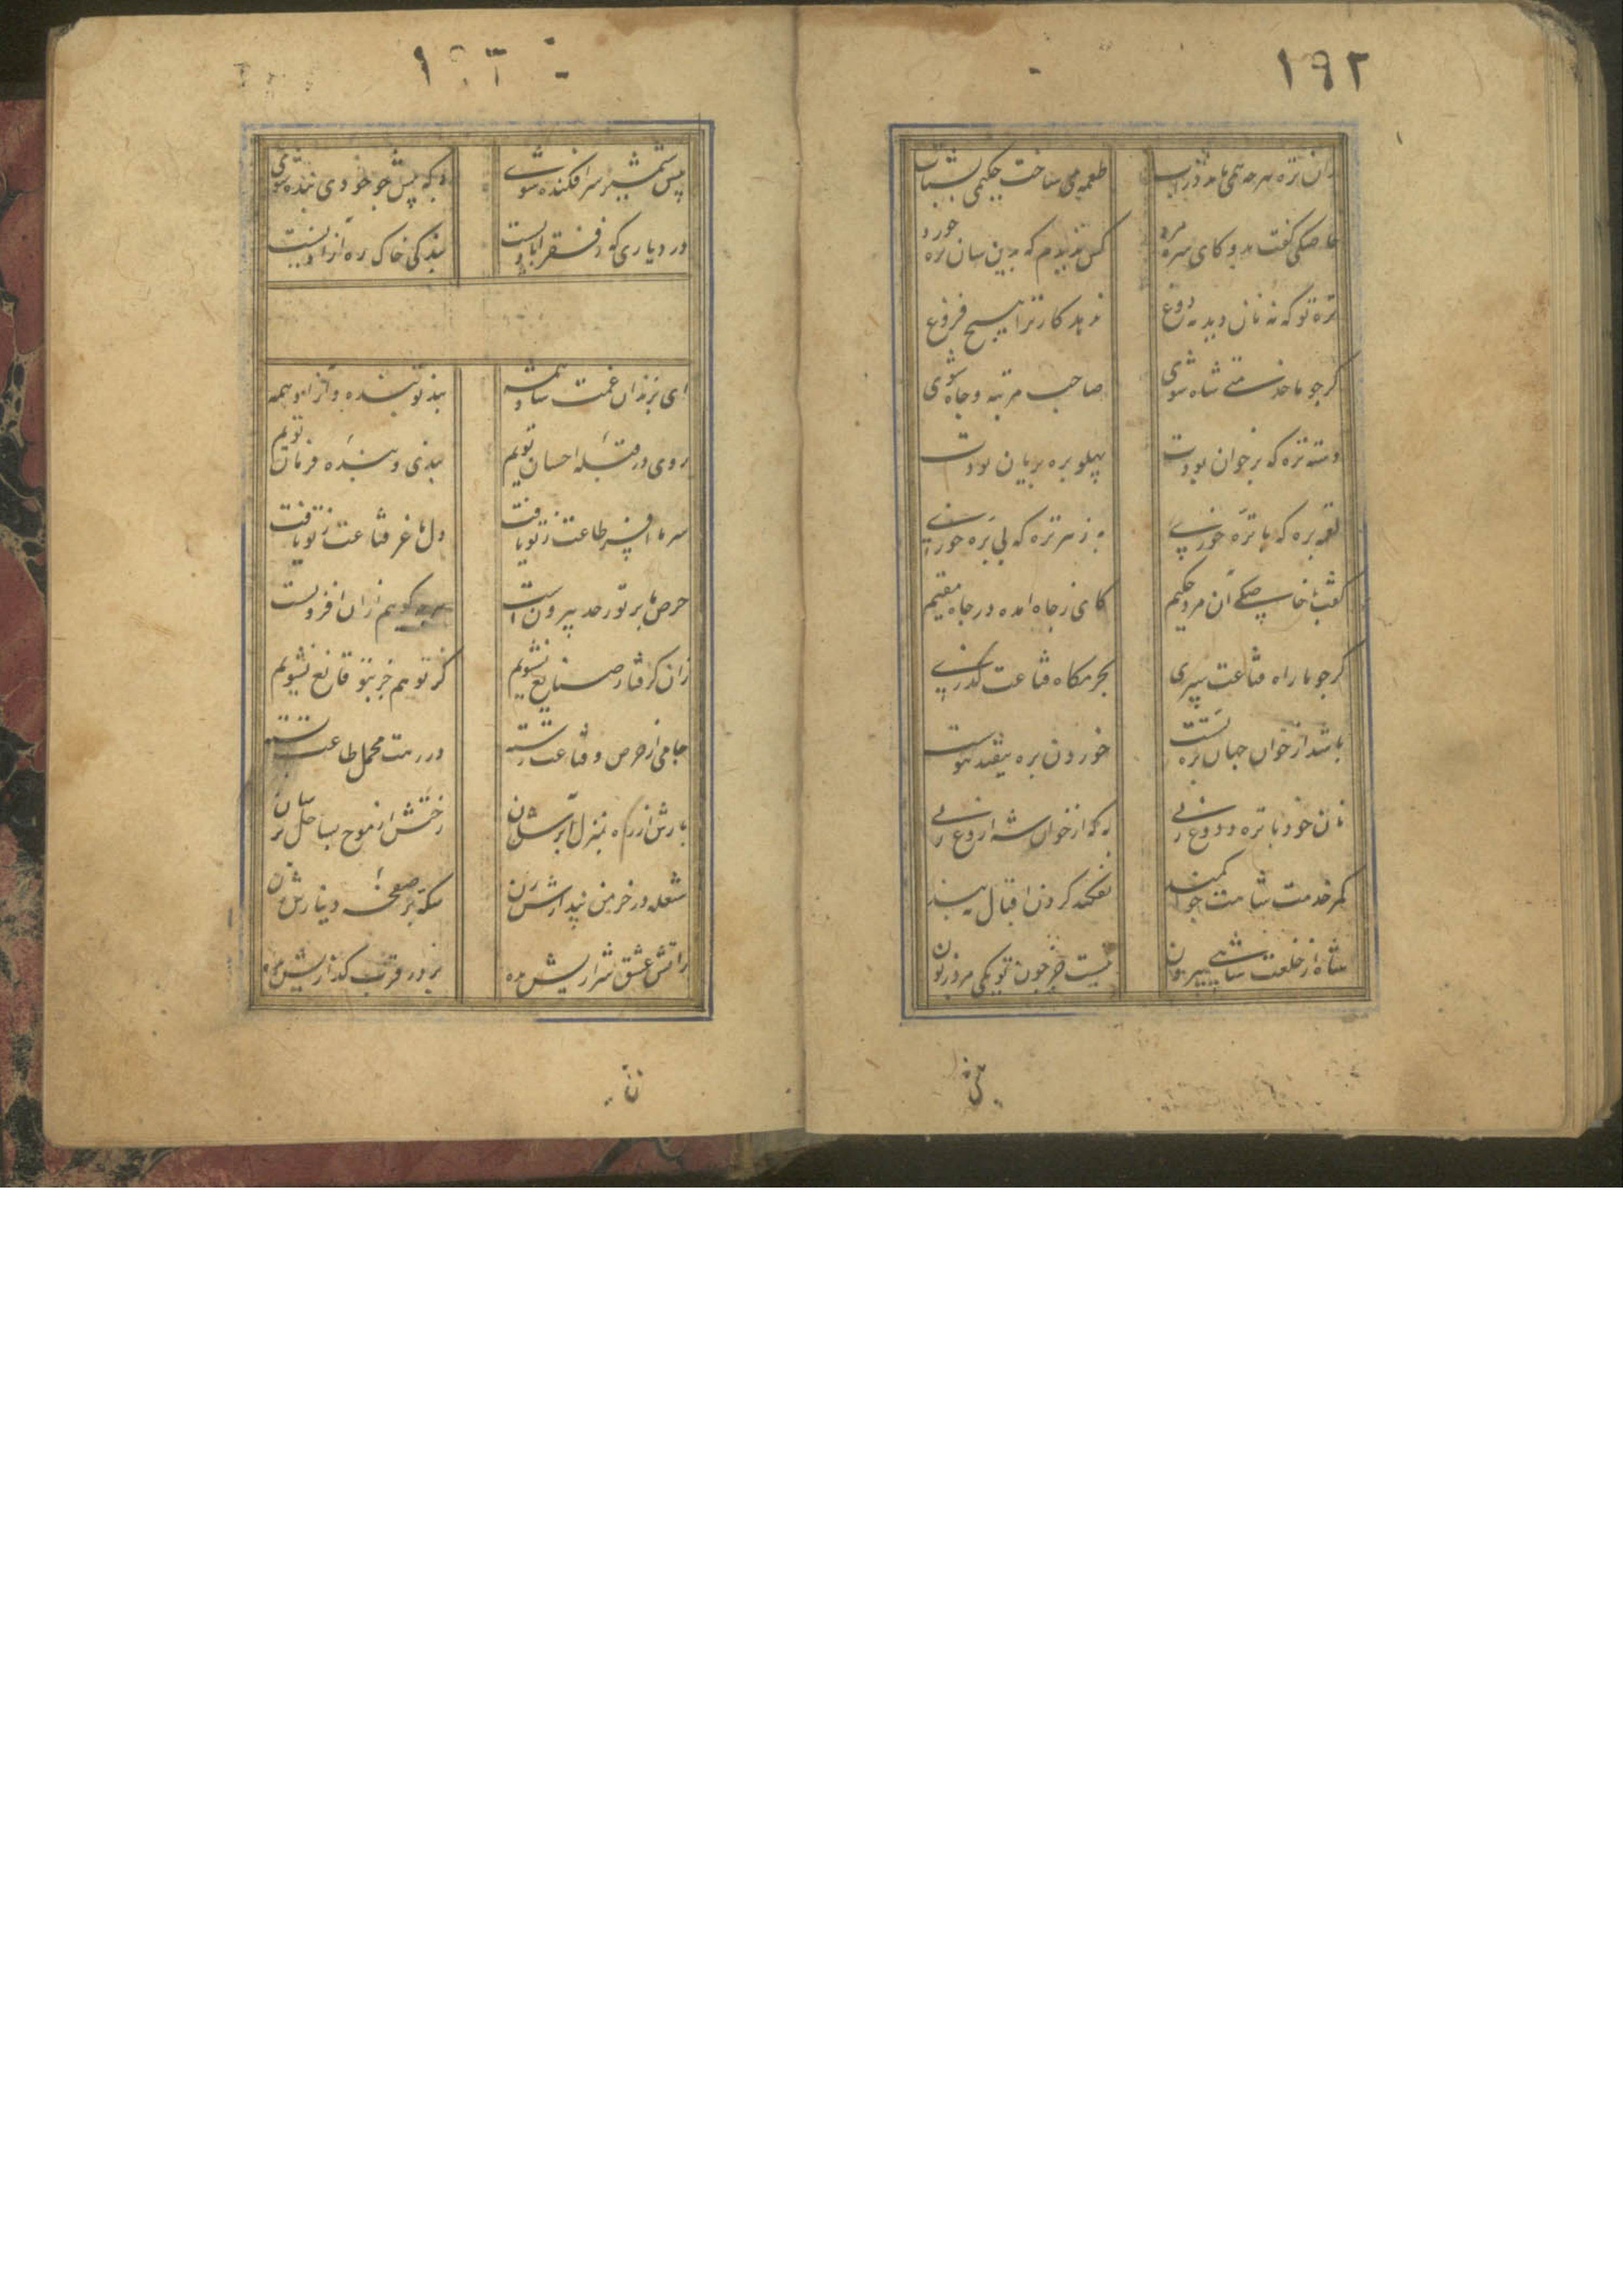 ۱۹۲
زان تره هرچه همی ماند در آب
طعمه می ساخت حکیمی بشتاب
خاصکی گفت بدو کای سره مرد
کس ندیدم که بدین سان تره خورد
تره تو که نه نان دید نه دوغ
ندهد کار ترا هیچ فروغ
گر چو ما خدمتی شاه شوی
صاحب مرتبه و جاه شوی
دسته تره که بر خوان بودت
پهلو بره بریان بودت
لقمه بره که با تره خوری
به ز هر تره که بی بره خوری
گفت با خاصکی آن مرد حکیم
کای ز جاه آمده در چاه مقیم
گر چو ما راه قناعت سپری
بحرمگاه قناعت گذری
باشد از خوان جهان تره بست
خوردن بره نیفتد هوست
نان خود با تره و دوغ زنی
به که از خوان شه آروغ زنی
کمر خدمت شاهت چو کمند
نفکند گردن اقبال به بند
شاه از خلعت شاهی بیرون
نیست جز چون تو یکی مرد زبون
پیش شمشیر سرافکنده شوی
به که پیش چو خودی بنده شوی
در دیاری که ز فقر آبادیست
بندگی خاک ره آزادیست
ای بزندان غمت شاد همه
بند تو بنده و آزاد همه
روی در قبله احسان توییم
بندی و بنده فرمان توییم
سر ما افسر طاعت ز تو یافت
دل ما عز قناعت ز تو یافت
حرص ما بر تو ز حد بیرون است
هرچه گوییم از آن افزونست
زان گرفتار صنایع نشویم
کز تو هم جز بتو قانع نشویم
جامی از حرص و قناعت رسته
در رهت محمل طاعت بسته
بارش از راه بمنزل برسان
رختش از موج بساحل برسان
شعله در خرمن پندارش زن
سکه بر صفحه دینارش زن
ز آتش عشق شراریش بده
بر در قرب گذاریش بده